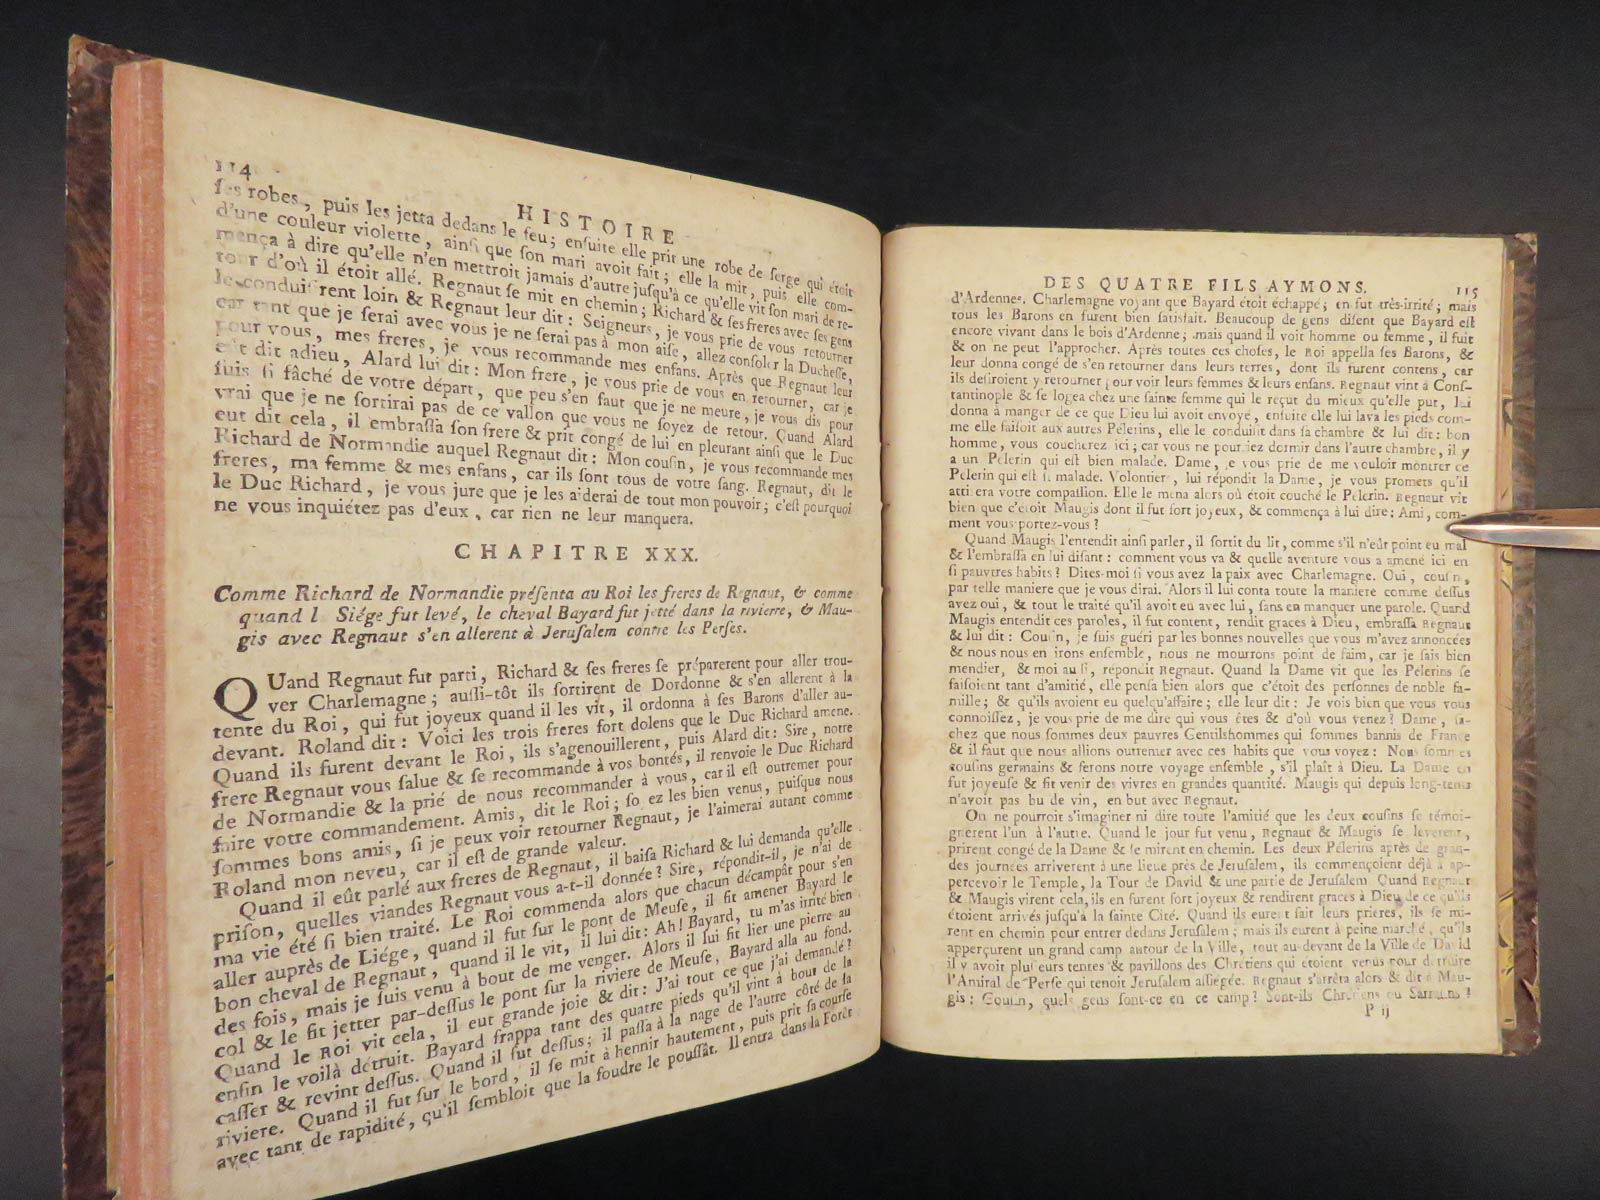 114
HISTOIRE
ses robes, puis les jetta dedans le feu; ensuite elle prit une robe de serge qui étoit
d'une couleur violette, ainsi que son mari avoit fait; elle la mit, puis elle com-
mença à dire qu'elle n'en mettroit jamais d'autre jusqu'à ce qu'elle vit son mari de re-
tour d'où il étoit allé. Regnaut se mit en chemin; Richard & ses freres avec ses gens
le conduisirent loin & Regnaut leur dit: Seigneurs, je vous prie de vous retourner
car tant que je serai avec vous je ne serai pas à mon aise, allez consoler la Duchesse,
pour vous, mes freres, je vous recommande mes enfans. Après que Regnaut leur
eut dit adieu, Alard lui dit: Mon frere, je vous prie de vous en retourner, car je
suis si fâché de votre départ, que peu s'en faut que je ne meure, je vous dis pour
vrai que je ne sortirai pas de ce vallon que vous ne soyez de retour. Quand Alard
eut dit cela, il embrassa son frere & prit congé de lui en pleurant ainsi que le Duc
Richard de Normandie auquel Regnaut dit: Mon cousin, je vous recommande mes
freres, ma femme & mes enfans, car ils sont tous de votre sang. Regnaut, dit le
le Duc Richard, je vous jure que je les aiderai de tout mon pouvoir; c'est pourquoi
ne vous inquiétez pas d'eux, car rien ne leur manquera.
CHAPITRE XXX.
Comme Richard de Normandie présenta au Roi les freres de Regnaut, & comme
quand l Siége fut levé, le cheval Bayard fut jetté dans la riviere, & Mau-
gis avec Regnaut s'en allerent à Jerusalem contre les Perses.
QUand Regnaut fut parti, Richard & ses freres se préparerent pour aller trou-
ver Charlemagne; aussi-tôt ils sortirent de Dordonne & s'en allerent à la
tente du Roi, qui fut joyeux quand il les vit, il ordonna à ses Barons d'aller au-
devant. Roland dit: Voici les trois freres fort dolens que le Duc Richard amene.
Quand ils furent devant le Roi, ils s'agenouillerent, puis Alard dit: Sire, notre
frere Regnaut vous salue & se recommande à vos bontés, il renvoie le Duc Richard
de Normandie & la prié de nous recommander à vous, car il est outremer pour
faire votre commandement. Amis, dit le Roi; so ez les bien venus, puisque nous
sommes bons amis, si je peux voir retourner Regnaut, je l'aimerai autant comme
Roland mon neveu, car il est de grande valeur.
Quand il eût parlé aux freres de Regnaut, il baisa Richard & lui demanda qu'elle
prison, quelles viandes Regnaut vous a-t-il donnée? Sire, répondit-il, je n'ai de
ma vie été si bien traité. Le Roi commenda alors que chacun décampât pour s'en
aller auprès de Liége, quand il fut sur le pont de Meuse, il fit amener Bayard le
bon cheval de Regnaut, quand il le vit, il lui dit: Ah! Bayard, tu m'as irrité bien
des fois, mais je suis venu à bout de me venger. Alors il lui fit lier une pierre au
col & le fit jetter par-dessus le pont sur la riviere de Meuse, Bayard alla au fond.
Quand le Roi vit cela, il eut grande joie & dit: J'ai tout ce que j'ai demandé?
enfin le voilà détruit. Bayard frappa tant des quatre pieds qu'il vint à bout de la
casser & revint dessus. Quand il fut dessus; il passa à la nage de l'autre côté de la
riviere. Quand il fut sur le bord, il se mit à hennir hautement, puis prit sa course
avec tant de rapidité, qu'il sembloit que la foudre le poussât. Il entra dans la Forêt
DES QUATRE FILS AYMONS. 115
d'Ardennes. Charlemagne voyant que Bayard étoit échappé; en fut très-irrité; mais
tous les Barons en furent bien satisfait. Beaucoup de gens disent que Bayard est
encore vivant dans le bois d'Ardenne; mais quand il voit homme ou femme, il fuit
& on ne peut l'approcher. Après toutes ces choses, le Roi appella ses Barons, &
leur donna congé de s'en retourner dans leurs terres, dont ils furent contens, car
ils desiroient y retourner pour voir leurs femmes & leurs enfans. Regnaut vint à Cons-
tantinople & se logea chez une sainte femme qui le reçut du mieux qu'elle put, lui
donna à manger de ce que Dieu lui avoit envoyé, ensuite elle lui lava les pieds com-
me elle faisoit aux autres Pélerins, elle le conduisit dans sa chambre & lui dit: bon
homme, vous coucherez ici; car vous ne pourriez dormir dans l'autre chambre, il y
a un Pelerin qui est bien malade. Dame, je vous prie de me vouloir montrer ce
Pelerin qui est si malade. Volontier, lui répondit la Dame, je vous promets qu'il
attirera votre compassion. Elle le mena alors où étoit couché le Pelerin. Regnaut vit
bien que c'étoit Maugis dont il fut fort joyeux, & commença à lui dire: Ami, com-
ment vous portez-vous?
Quand Maugis l'entendit ainsi parler, il sortit du lit, comme s'il n'eût point eu mal
& l'embrassa en lui disant: comment vous va & quelle aventure vous a amené ici en
si pauvres habits? Dites-moi si vous avez la paix avec Charlemagne. Oui, cousin,
par telle maniere que je vous dirai. Alors il lui conta toute la maniere comme dessus
avez oui, & tout le traité qu'il avoit eu avec lui, sans en manquer une parole. Quand
Maugis entendit ces paroles, il fut content, rendit graces à Dieu, embrassa Regnaut
& lui dit: Cousin, je suis guéri par les bonnes nouvelles que vous m'avez annoncées
& nous nous en irons ensemble, nous ne mourrons point de faim, car je sais bien
mendier, & moi aussi, répondit Regnaut. Quand la Dame vit que les Pelerins se
faisoient tant d'amitié, elle pensa bien alors que c'étoit des personnes de noble fa-
mille; & qu'ils avoient eu quelqu'affaire; elle leur dit: Je vois bien que vous vous
connoissez, je vous prie de me dire qui vous êtes & d'où vous venez? Dame, sa-
chez que nous sommes deux pauvres Gentilshommes qui sommes bannis de France
& il faut que nous allions outremer avec ces habits que vous voyez: Nous sommes
cousins germains & ferons notre voyage ensemble, s'il plaît à Dieu. La Dame en
fut joyeuse & fit venir des vivres en grandes quantité. Maugis qui depuis long-tems
n'avoit pas bu de vin, en but avec Regnaut.
On ne pourroit s'imaginer ni dire toute l'amitié que les deux cousins se témoi-
gnerent l'un à l'autre. Quand le jour fut venu, Regnaut & Maugis se leverent,
prirent congé de la Dame & se mirent en chemin. Les deux Pélerins après de gran-
des journées arriverent à une lieue près de Jerusalem, ils commençoient déjà à ap-
percevoir le Temple, la Tour de David & une partie de Jerusalem. Quand Regnaut
& Maugis virent cela, ils en furent fort joyeux & rendirent graces à Dieu de ce qu'ils
étoient arrivés jusqu'à la sainte Cité. Quand ils eurent fait leurs prieres, ils se mi-
rent en chemin pour entrer dedans Jerusalem; mais ils eurent à peine marché, qu'ils
apperçurent un grand camp autour de la Ville, tout au-devant de la Ville de David
il y avoit plusieurs tentes & pavillons des Chrétiens qui étoient venus pour détruire
l'Amiral de Perse qui tenoit Jerusalem assiegée. Regnaut s'arrêta alors & dit à Mau-
gis: Cousin, quels gens sont-ce en ce camp? Sont-ils Chrétiens ou Sarrasins?
P ij